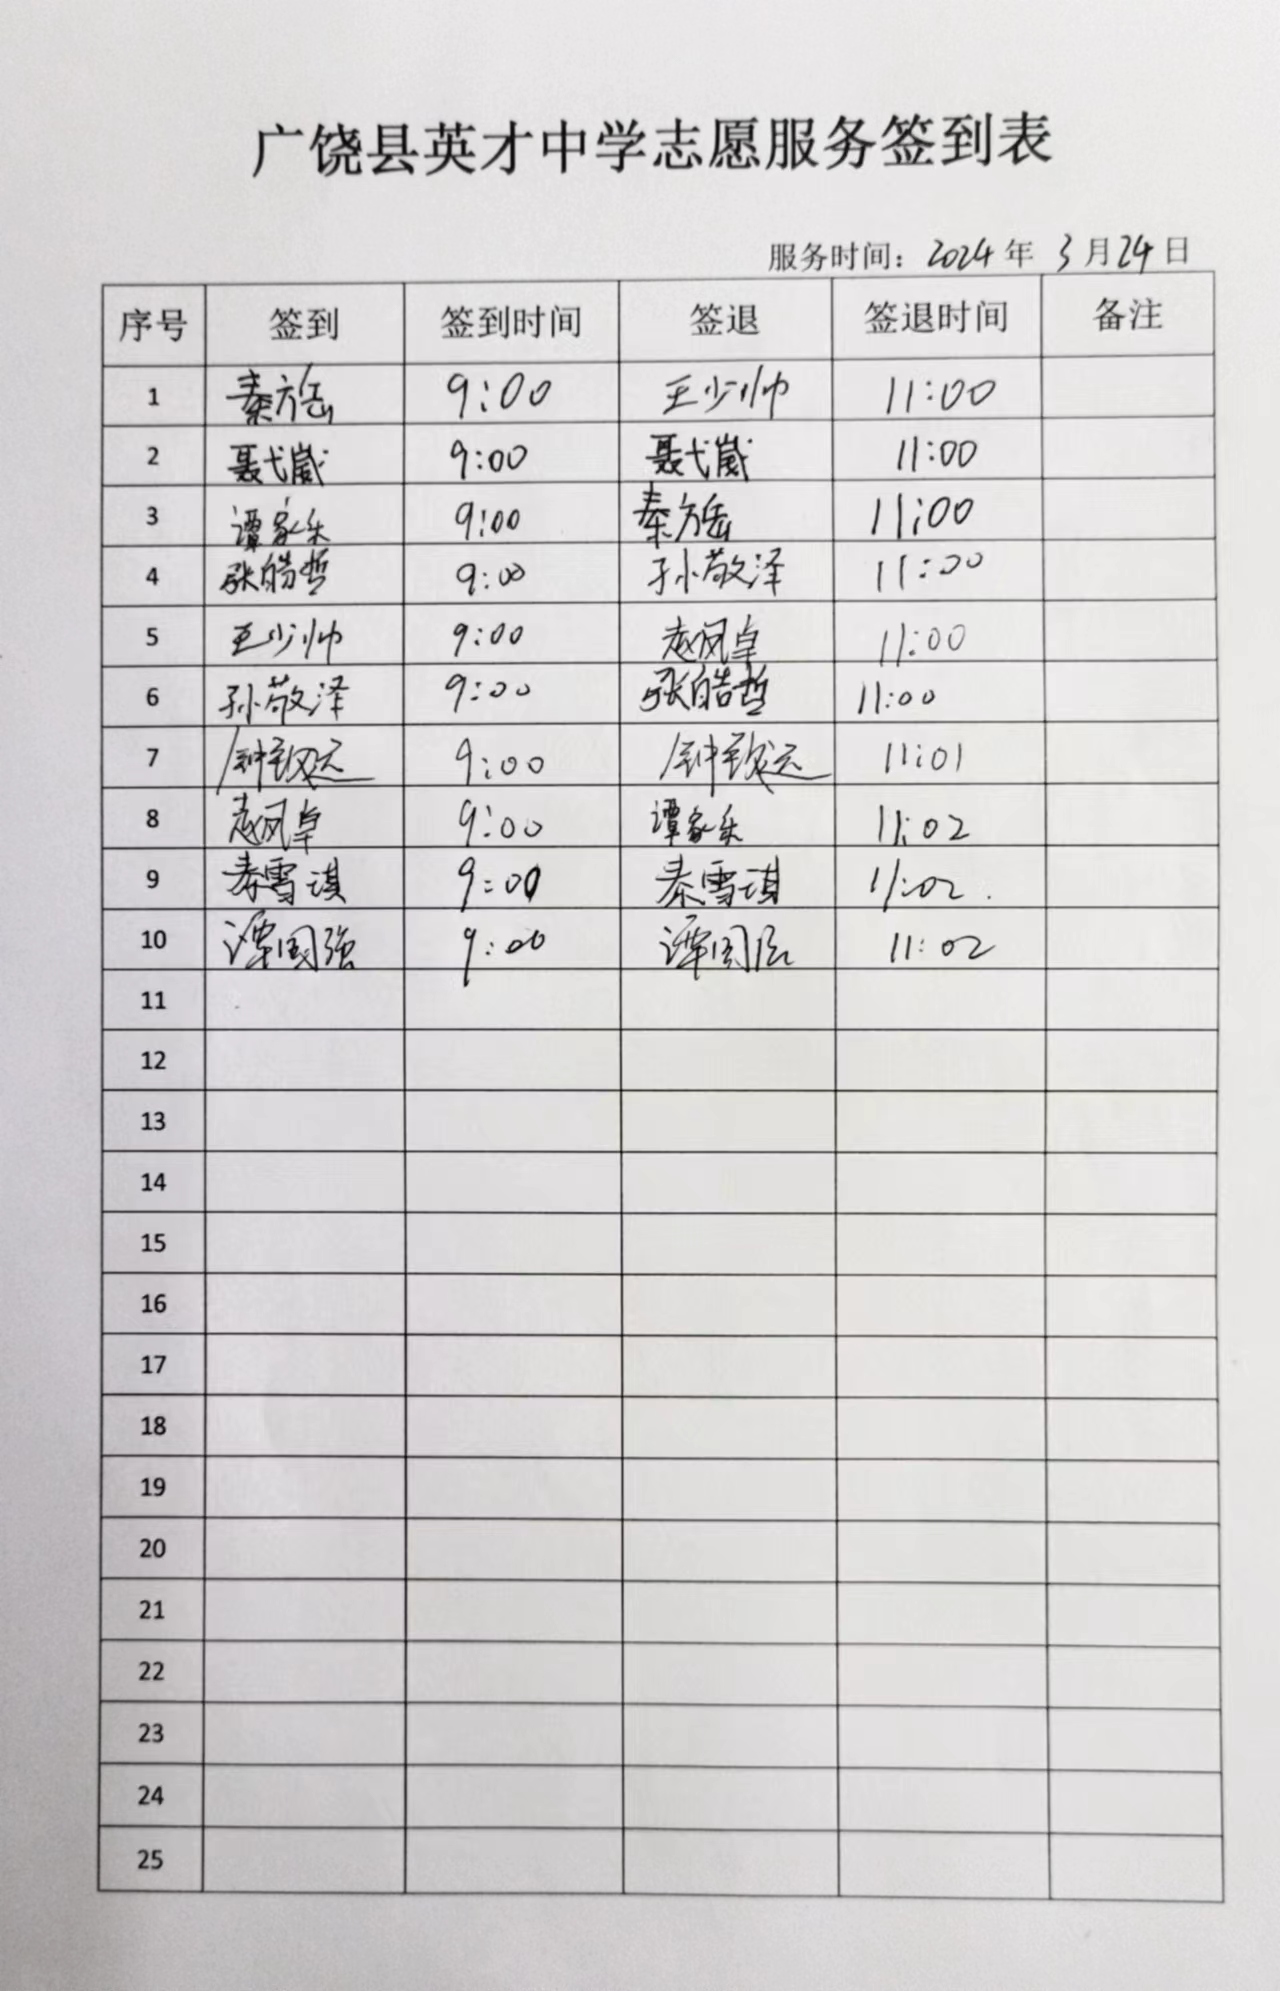 广饶县英才中学志愿服务签到表
服务时间：2024年 3月24日
序号 签到 签到时间 签退 签退时间 备注
1 秦方岳 9:00 王少帅 11:00
2 聂弋崴 9:00 聂弋崴 11:00
3 谭家乐 9:00 秦方岳 11:00
4 张皓哲 9:00 孙敬泽 11:00
5 王少帅 9:00 赵凤卓 11:00
6 孙敬泽 9:00 张皓哲 11:00
7 钟致远 9:00 钟致远 11:01
8 赵凤卓 9:00 谭家乐 11:02
9 秦雪琪 9:00 秦雪琪 11:02.
10 谭国强 9:00 谭国 11:02
11
12
13
14
15
16
17
18
19
20
21
22
23
24
25